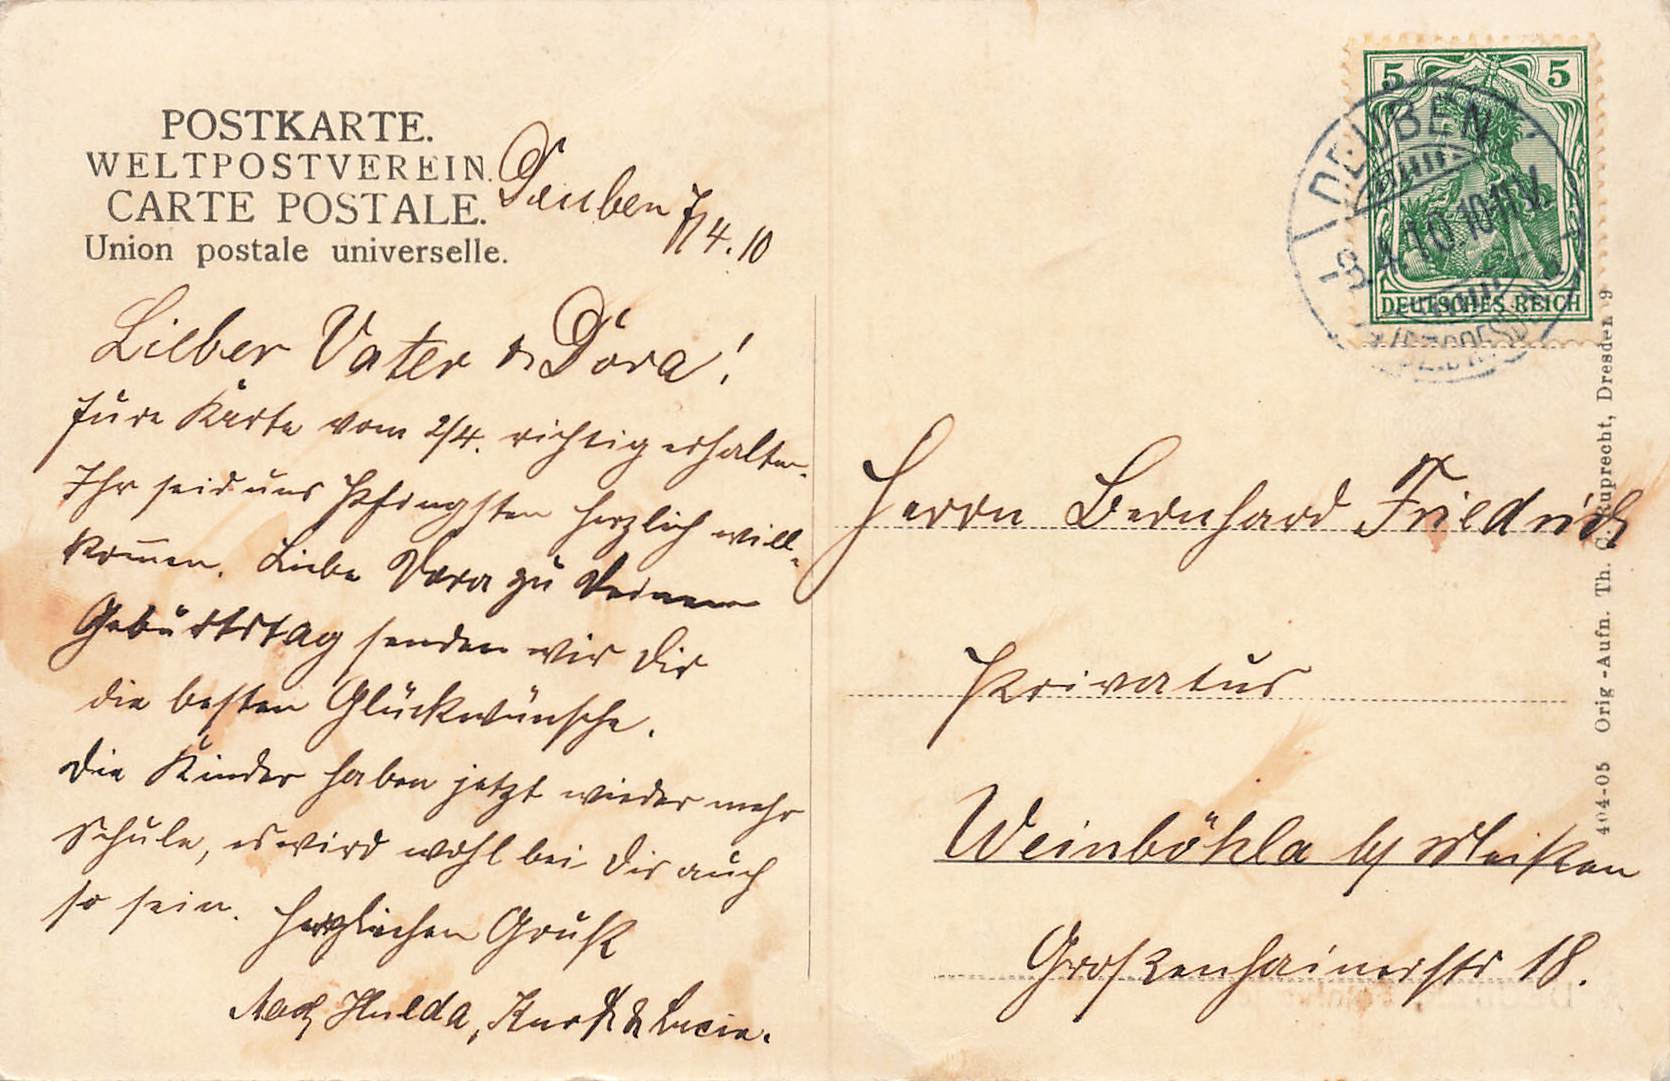 POSTKARTE.
WELTPOSTVEREIN.
CARTE POSTALE.
Union postale universelle.
Deuben 7/4.10
Lieber Vater & Dora!
Eure Karte vom 2/4. richtig erhalten.
Ihr seid uns Pfingsten herzlich will-
kommen. Liebe Dora zu Deinem
Geburtstag senden wir Dir
die besten Glückwünsche.
Die Kinder haben jetzt wieder mehr
Schule, es wird wohl bei Dir auch
so sein. Herzlichen Gruß
Hulda, Kurt & Lucie.
5 5
DEUTSCHES REICH
DEUBEN
8.4.10.10-11V.
Herrn Bernhard Friedrich
Privatus
Weinböhla b/ Meißen
Großenhainerstr 18.
404-05 Orig.-Aufn. Th. C. Ruprecht, Dresden 9